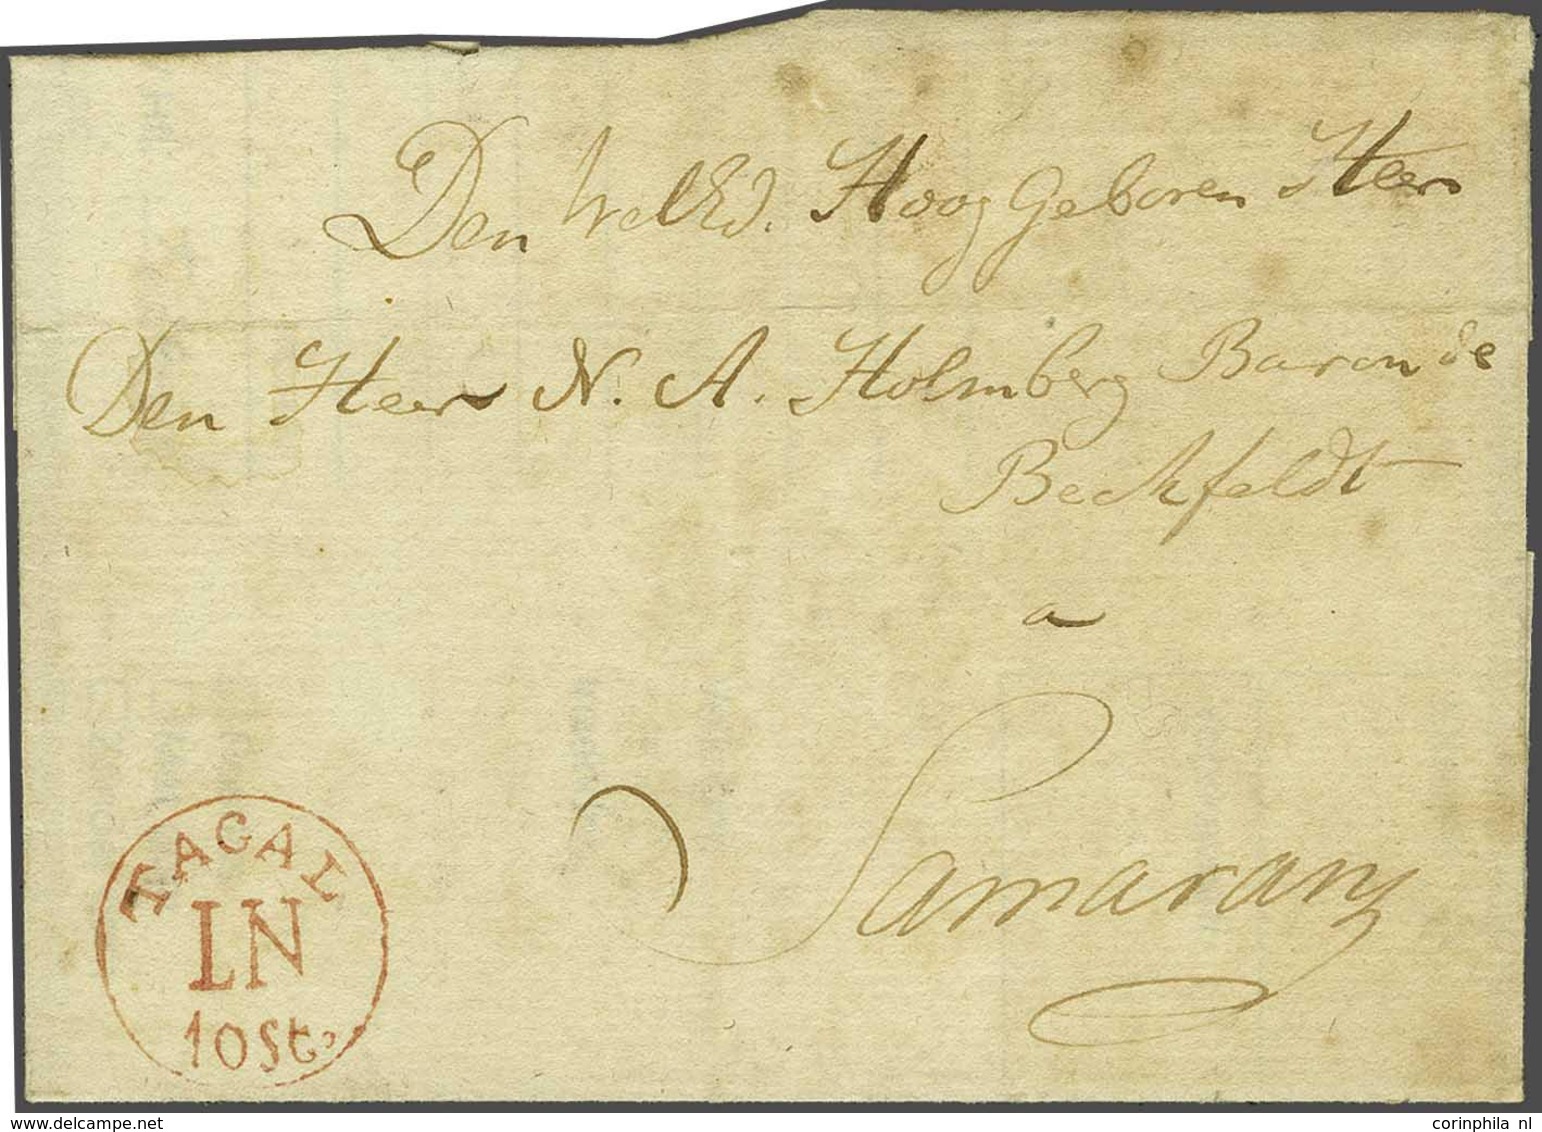 Den WelEd. Hoog Geboren Heer
Den Heer N. A. Holmberg Baron de
Beckfeldt
a
Samarang
TAGAL
LN
10 St.
corinphila nl